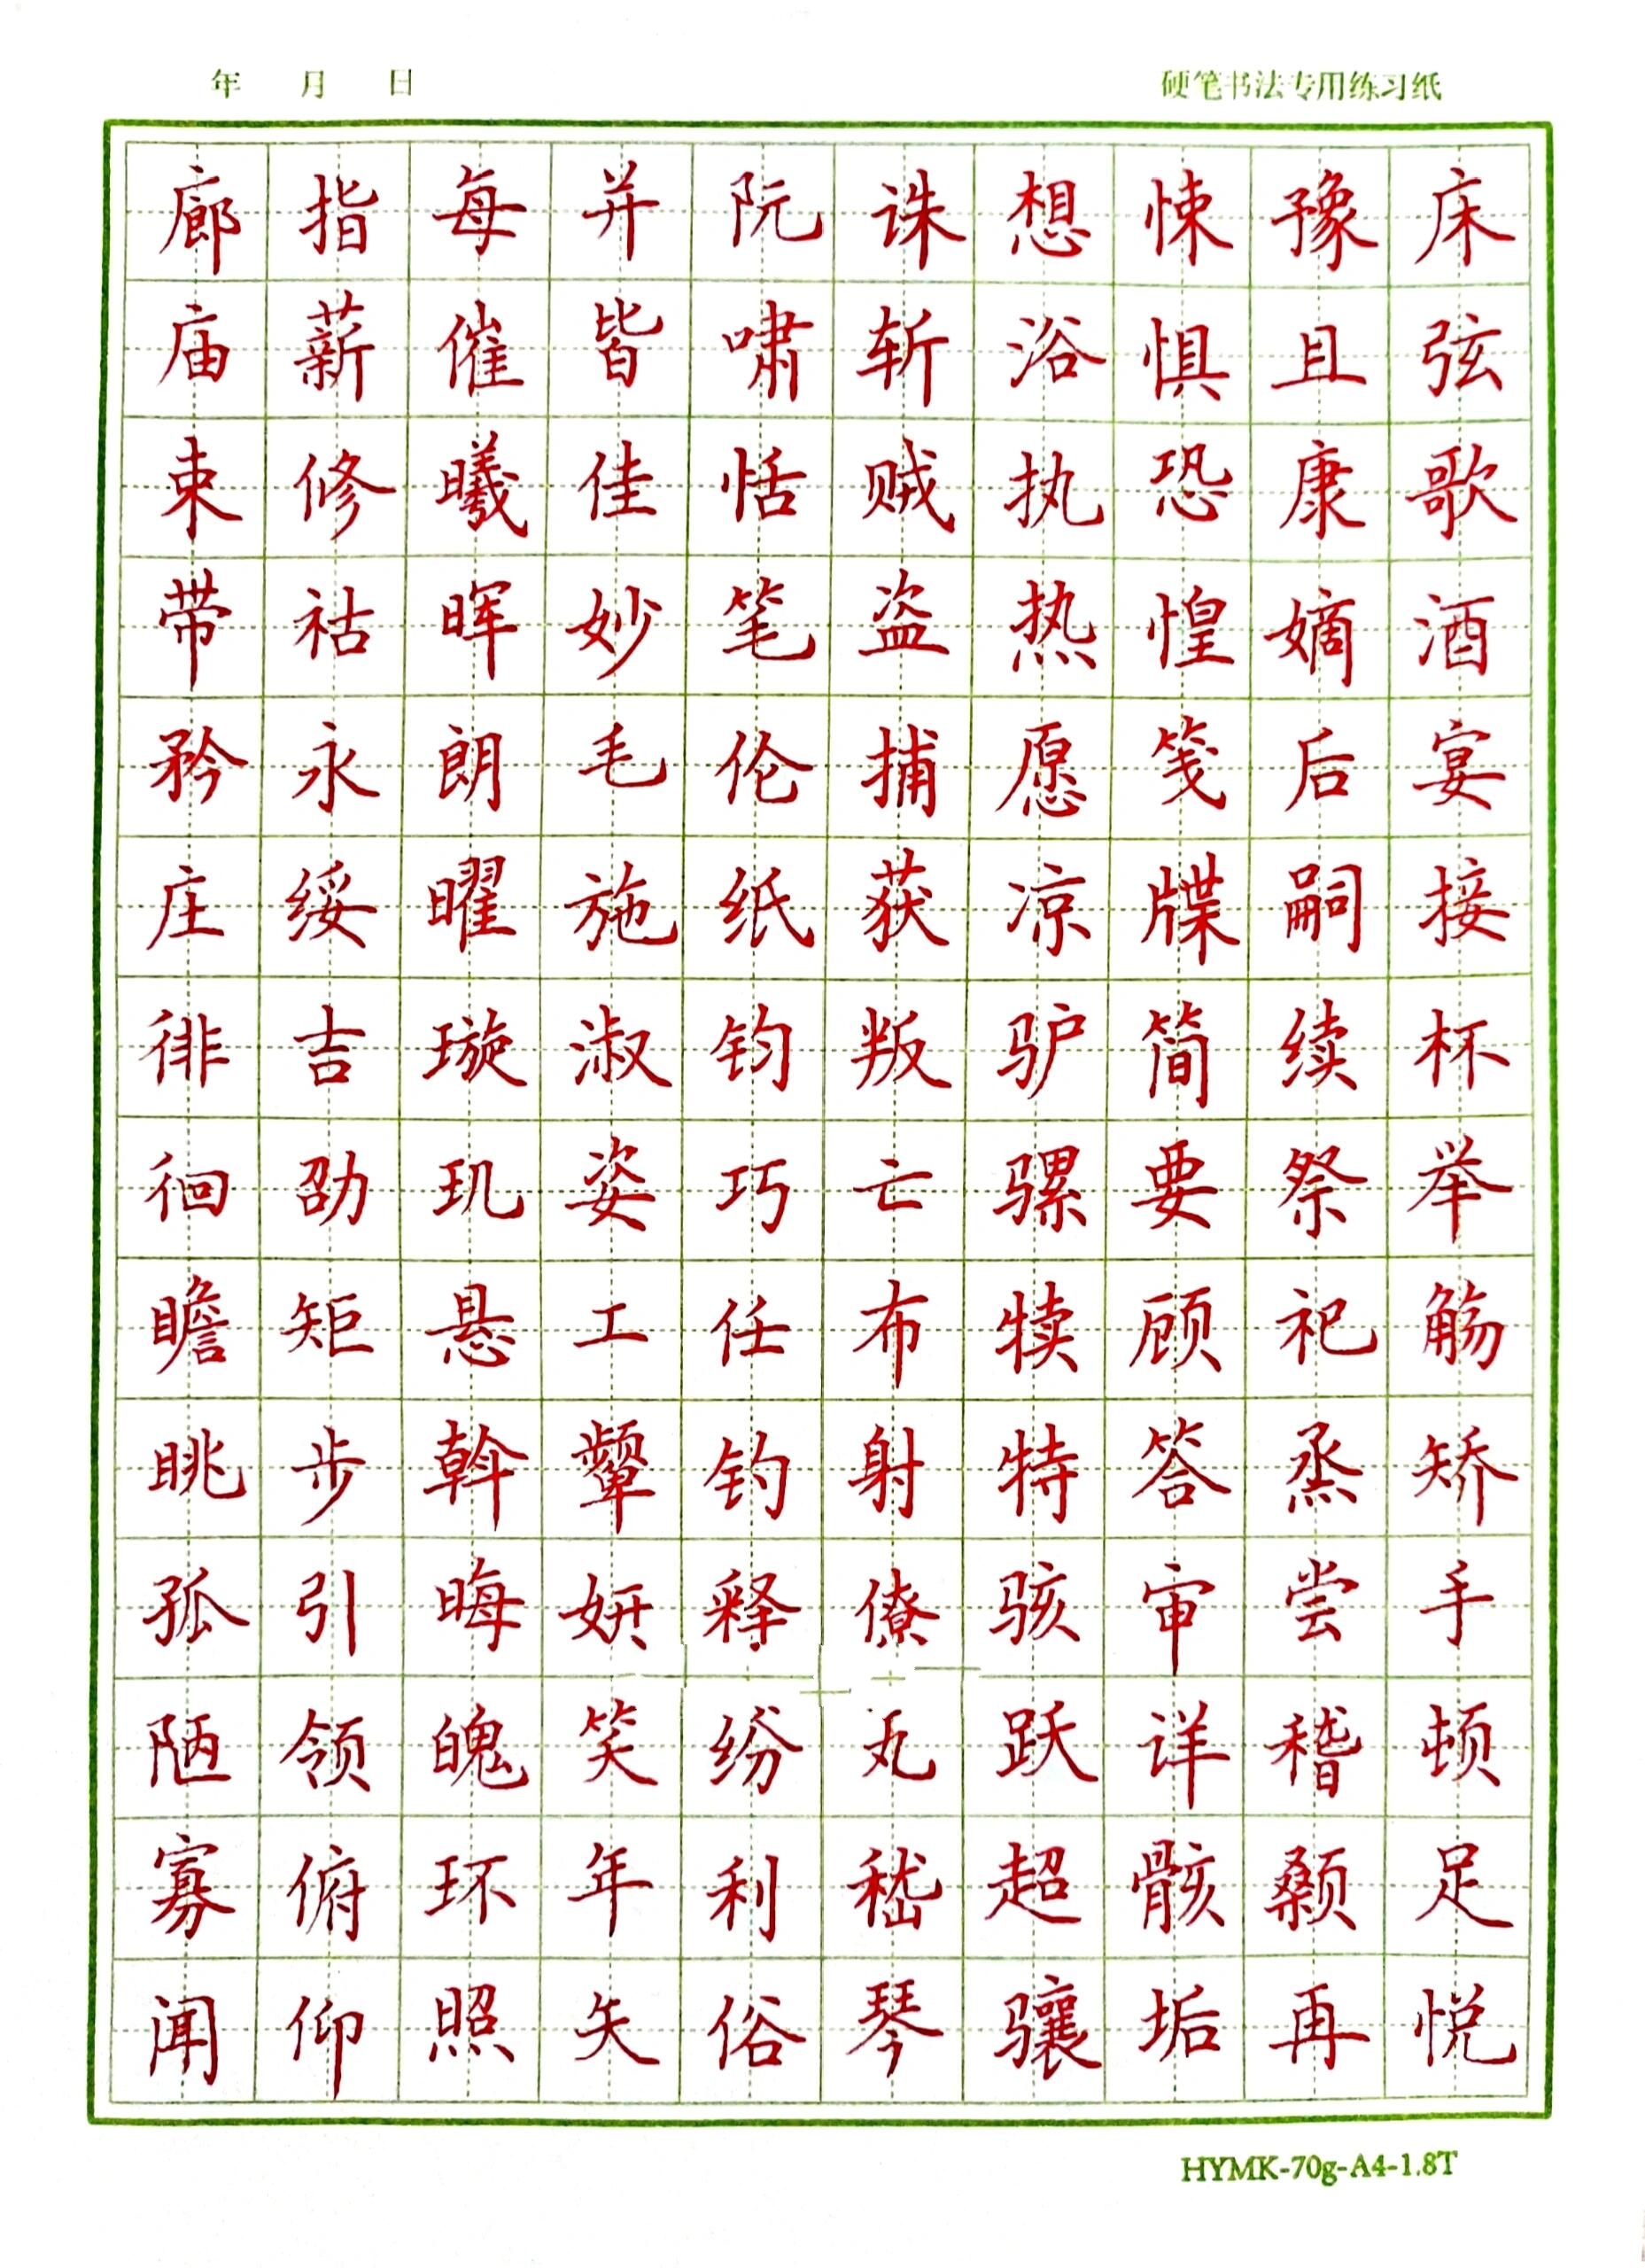 年 月 日
硬笔书法专用练习纸
床弦歌酒宴接杯举觞矫手顿足悦
豫且康嫡后嗣续祭祀烝尝稽颡再
悚惧恐惶笺牒简要顾答审详骸垢
想浴执热愿凉驴骡犊特骇跃超骧
诛斩贼盗捕获叛亡布射僚丸嵇琴
阮啸恬笔伦纸钧巧任钓释纷利俗
并皆佳妙毛施淑姿工颦妍笑年矢
每催曦晖朗曜璇玑悬斡晦魄环照
指薪修祜永绥吉劭矩步引领俯仰
廊庙束带矜庄徘徊瞻眺孤陋寡闻
HYMK-70g-A4-1.8T